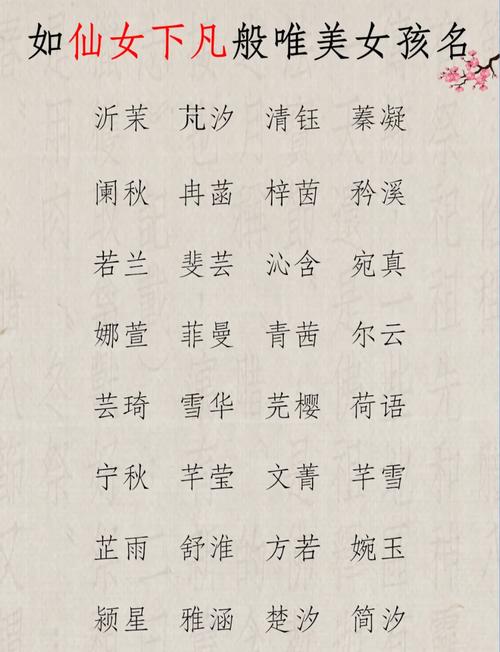 如仙女下凡般唯美女孩名
沂茉 芃汐 清钰 蓁凝
阑秋 冉菡 梓茵 矜溪
若兰 斐芸 沁含 宛真
娜萱 菲曼 青茜 尔云
芸琦 雪华 芫樱 荷语
宁秋 芊莹 文菁 芊雪
芷雨 舒淮 方若 婉玉
颍星 雅涵 楚汐 简汐